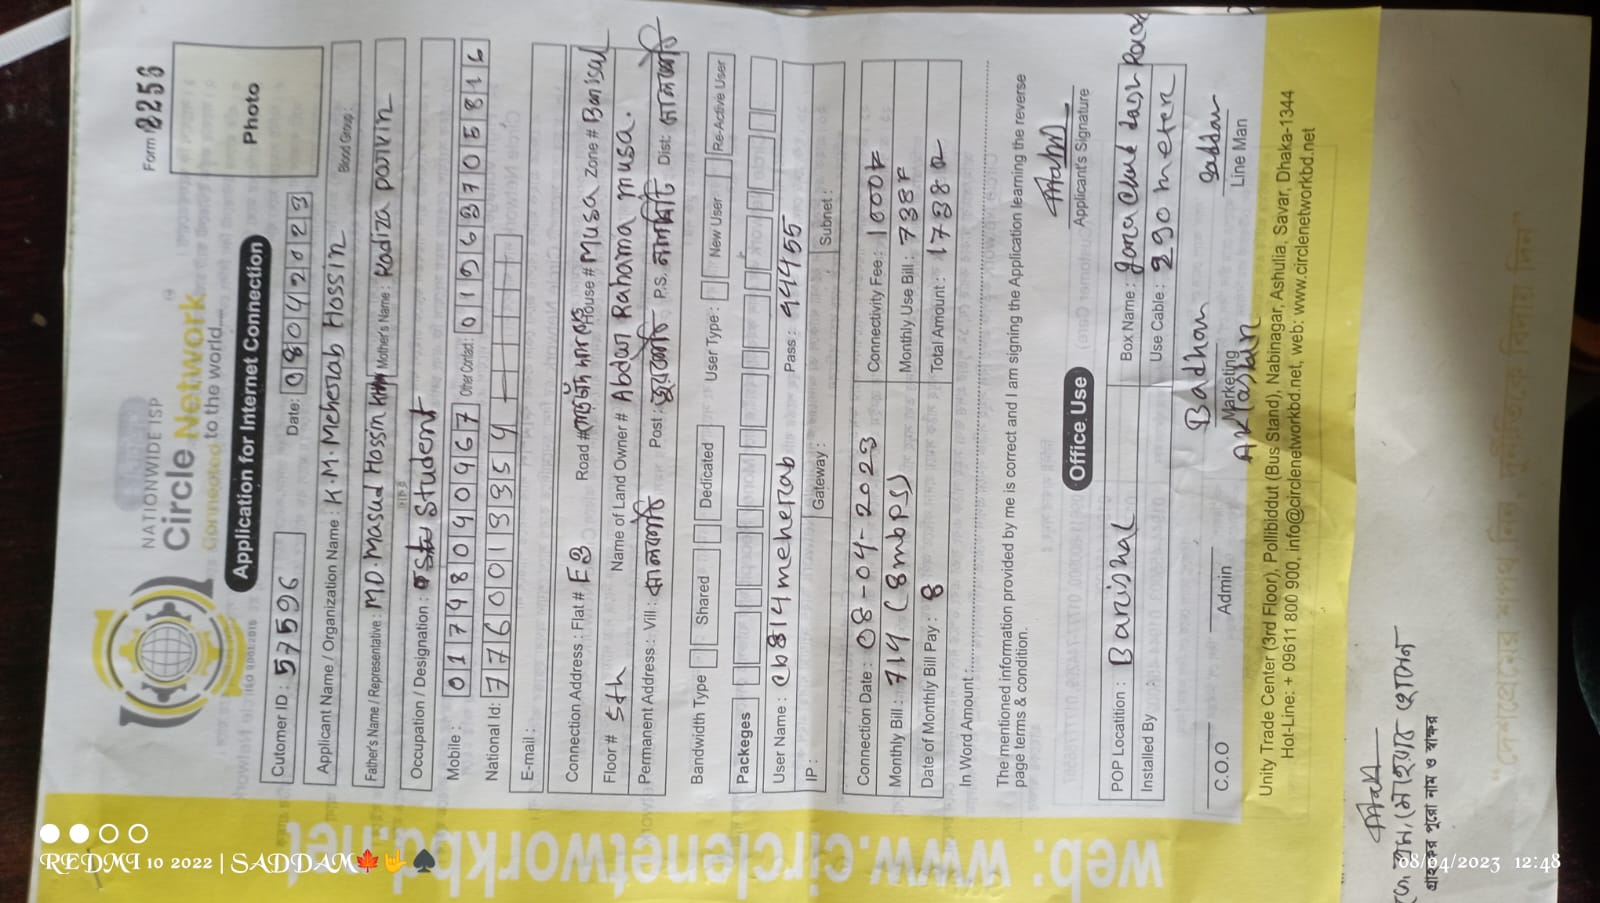 NATIONWIDE ISP
Circle Network
Connected to the world....
ISO 9001:2015
Form 8256
Photo
Application for Internet Connection
Cutomer ID : 57596
Date: 08042023
Applicant Name / Organization Name : K.M. Meherab Hossin
Blood Group :
Father's Name / Representative : MD. Masud Hossin
Mother's Name : Kadiza parvin
Occupation / Designation : Student
Mobile : 01798040967
Other Contact : 01963705816
National Id: 7760013354
E-mail :
Connection Address : Flat # E3
Road #
House # Musa
Zone # Barisal
Floor # 5th
Name of Land Owner # Abdur Rahama musa.
Permanent Address : Vill :
Post :
P.S.
Dist:
Bandwidth Type
Shared
Dedicated
User Type :
New User
Re-Active User
Packeges
User Name : cb814meherab
Pass : 444455
IP :
Gateway :
Subnet :
Connection Date : 08-04-2023
Connectivity Fee : 1000
Monthly Bill : 714 (8mbps)
Monthly Use Bill : 738
Date of Monthly Bill Pay : 8
Total Amount : 1738
In Word Amount :
The mentioned information provided by me is correct and I am signing the Application learning the reverse
page terms & condition.
Applicant's Signature
Office Use
POP Locatition : Barishal
Box Name :
Installed By
Use Cable : 290 meter
C.O.O
Admin
Badhon
Marketing
Saddam
Line Man
Unity Trade Center (3rd Floor), Pollibiddut (Bus Stand), Nabinagar, Ashulia, Savar, Dhaka-1344
Hot-Line: + 09611 800 900, info@circlenetworkbd.net, web: www.circlenetworkbd.net
web: www.circlenetworkbd.net
গ্রাহকের পুরো নাম ও স্বাক্ষর
REDMI 10 2022 | SADDAM
08/04/2023 12:48